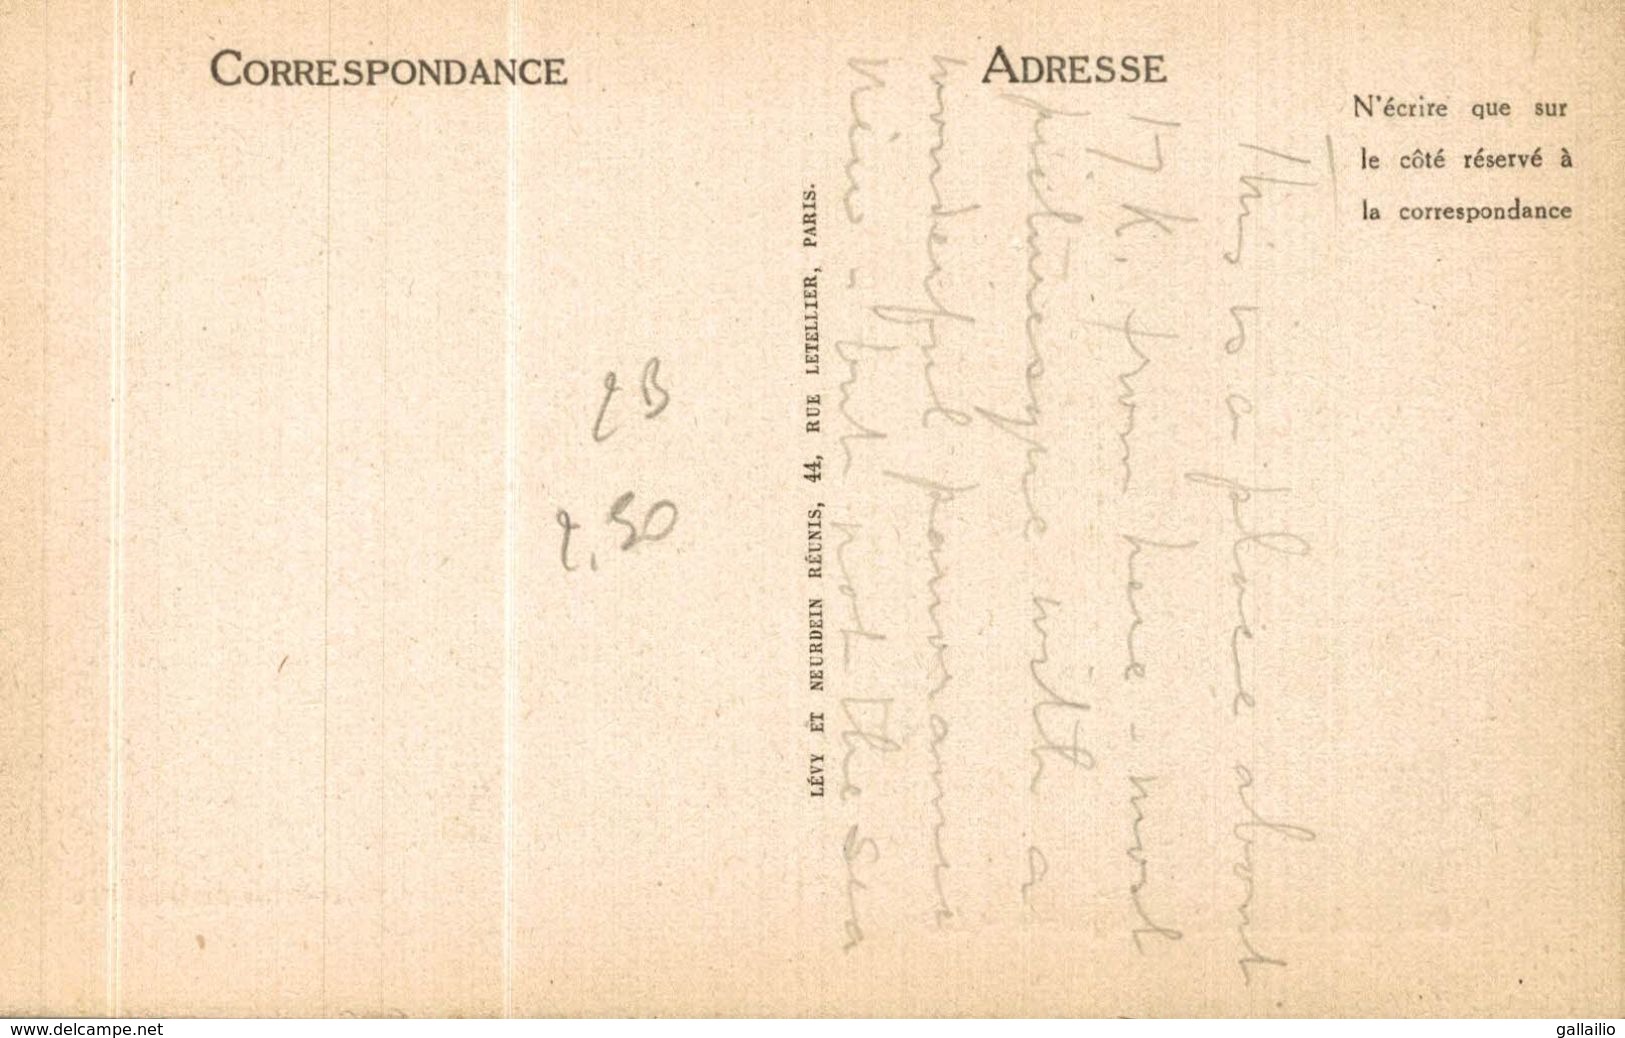 CORRESPONDANCE
ADRESSE
N'écrire que sur
le côté réservé à
la correspondance
LÉVY ET NEURDEIN RÉUNIS, 44, RUE LETELLIER, PARIS.
This is a place about
17 K. from here - most
picturesque with a
wonderful panoramic
view - but not the sea
2B
2,50
www.delcampe.net
gallailio